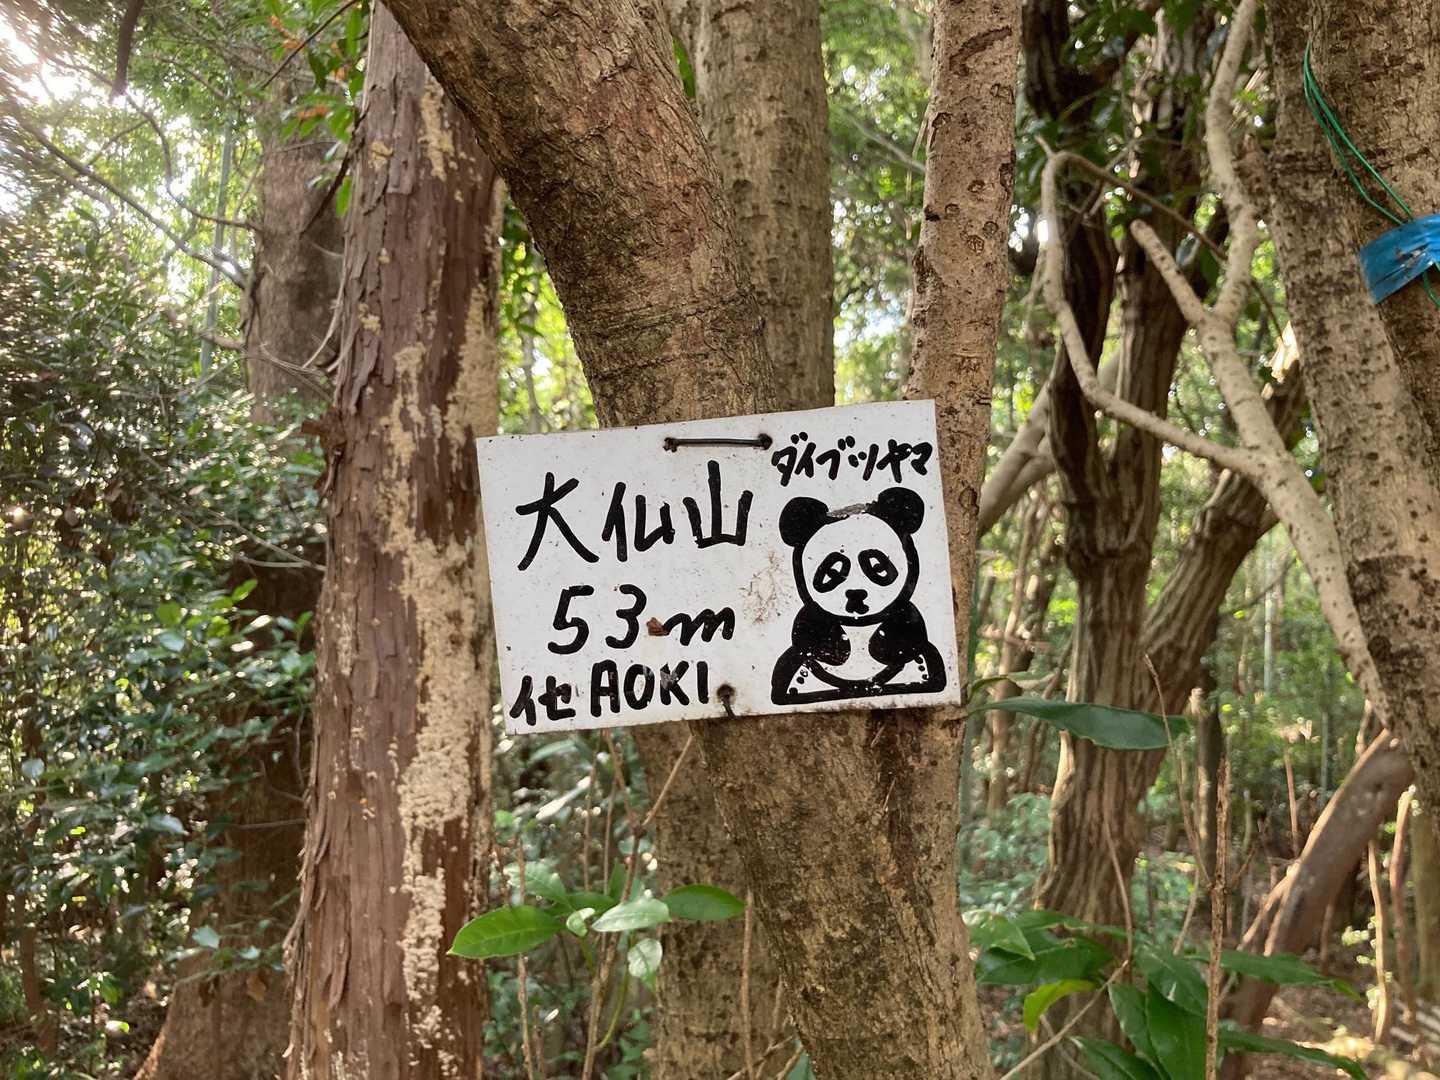 ダイブツヤマ
大仏山
53m
佐AOKI